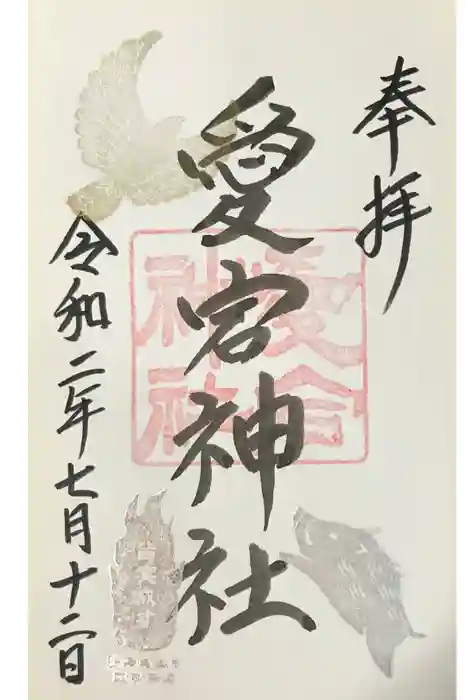 奉拝
愛宕神社
愛宕神社
令和二年七月十二日